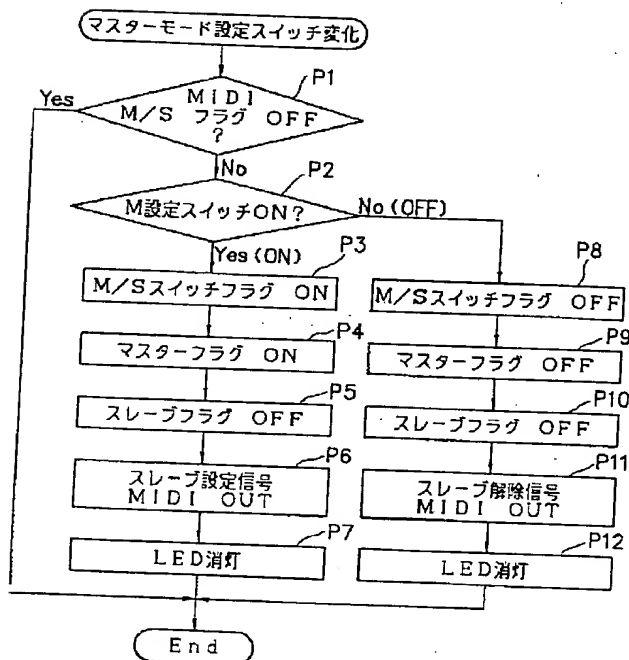 マスターモード設定スイッチ変化
P1
Yes
MIDI
M/S フラグ OFF
?
No
P2
M設定スイッチON?
No(OFF)
Yes(ON)
P3
M/Sスイッチフラグ ON
P4
マスターフラグ ON
P5
スレーブフラグ OFF
P6
スレーブ設定信号
MIDI OUT
P7
LED消灯
P8
M/Sスイッチフラグ OFF
P9
マスターフラグ OFF
P10
スレーブフラグ OFF
P11
スレーブ解除信号
MIDI OUT
P12
LED消灯
End